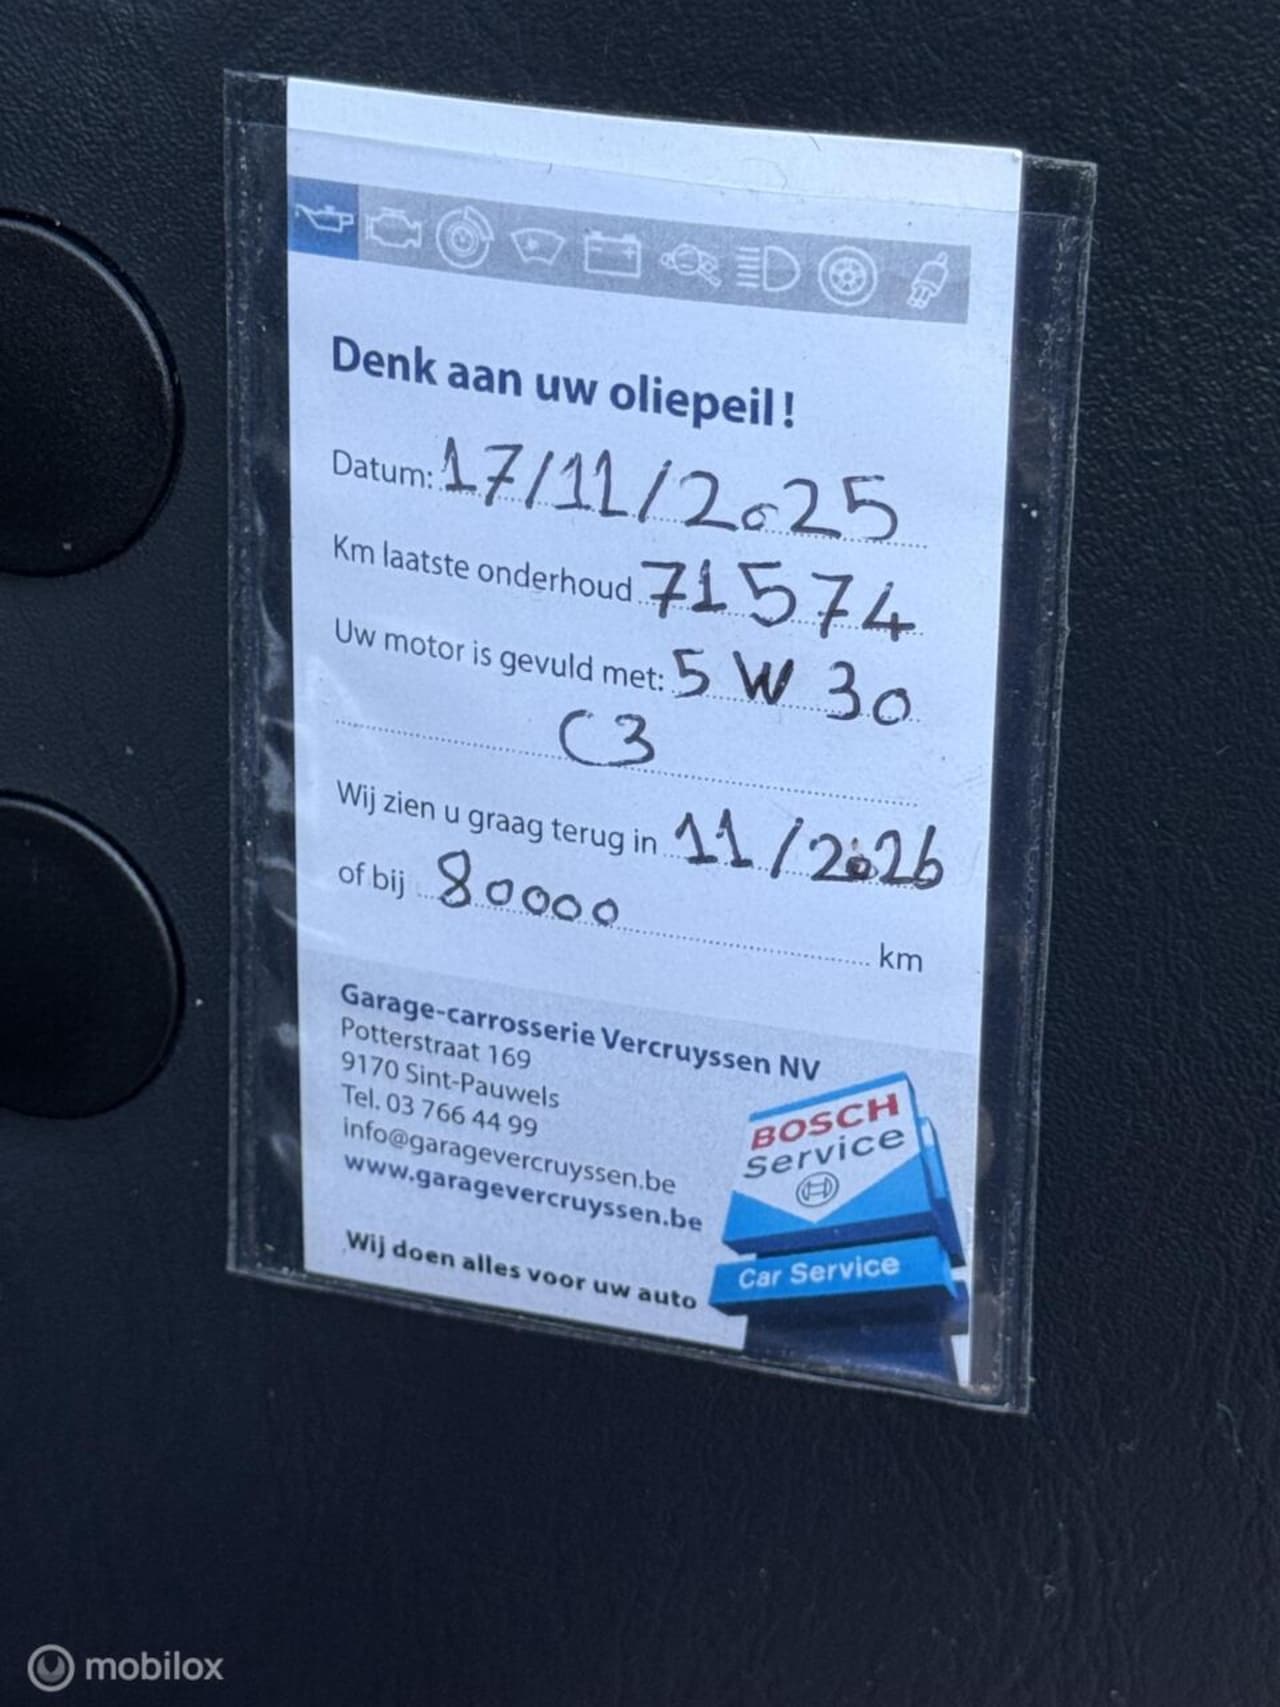 Denk aan uw oliepeil!
Datum: 17/11/2025
Km laatste onderhoud 71574
Uw motor is gevuld met: 5 W 30
C3
Wij zien u graag terug in 11/2026
of bij 80000 km
Garage-carrosserie Vercruyssen NV
Potterstraat 169
9170 Sint-Pauwels
Tel. 03 766 44 99
info@garagevercruyssen.be
www.garagevercruyssen.be
Wij doen alles voor uw auto
BOSCH
Service
Car Service
mobilox